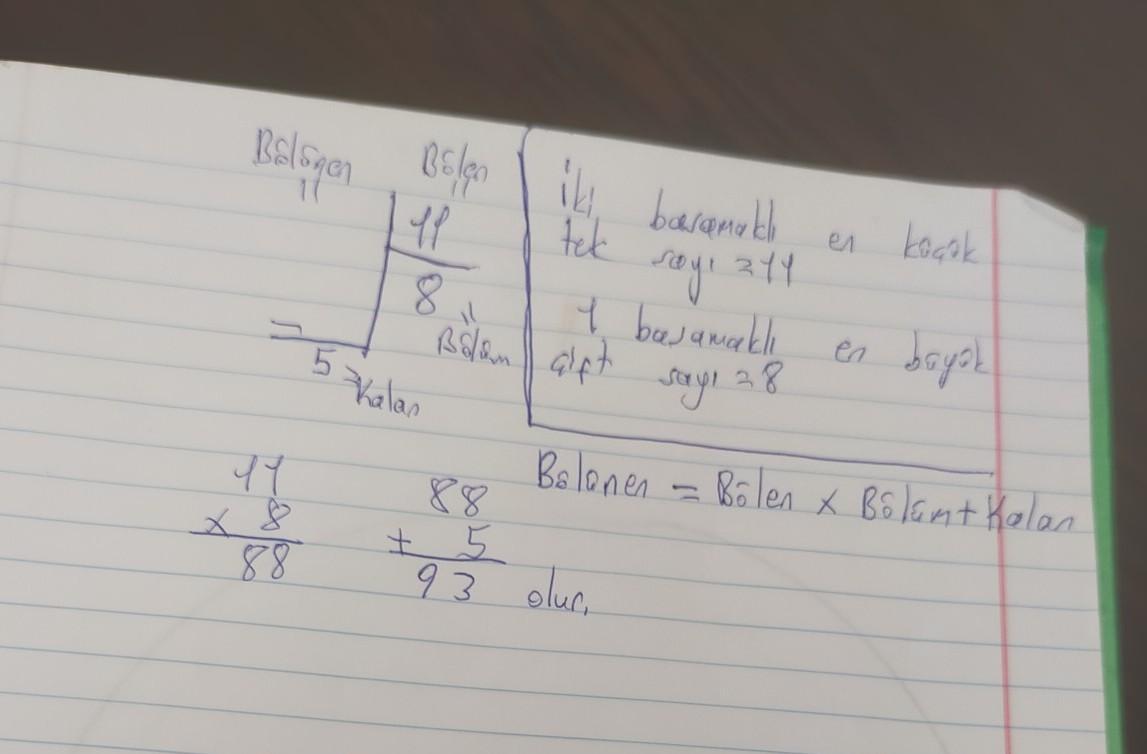 Bölünen Bölen
11
8
Bölüm
5 Kalan
İki basamaklı en küçük
tek sayı = 11
1 basamaklı en büyük
çift sayı = 8
Bölünen = Bölen x Bölüm + Kalan
11
x 8
88
88
+ 5
93 olur.